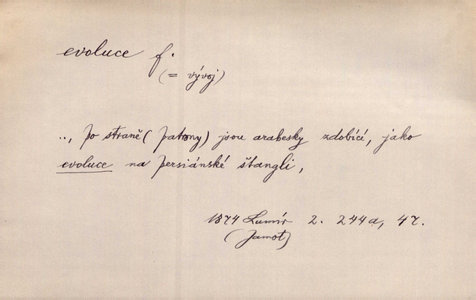 evoluce f.
(= vývoj)
.., po straně (patrny) jsou arabesky zdobící, jako
evoluce na persiánské štangli,
1874 Lumír 2. 244a, 47.
(Jamot)